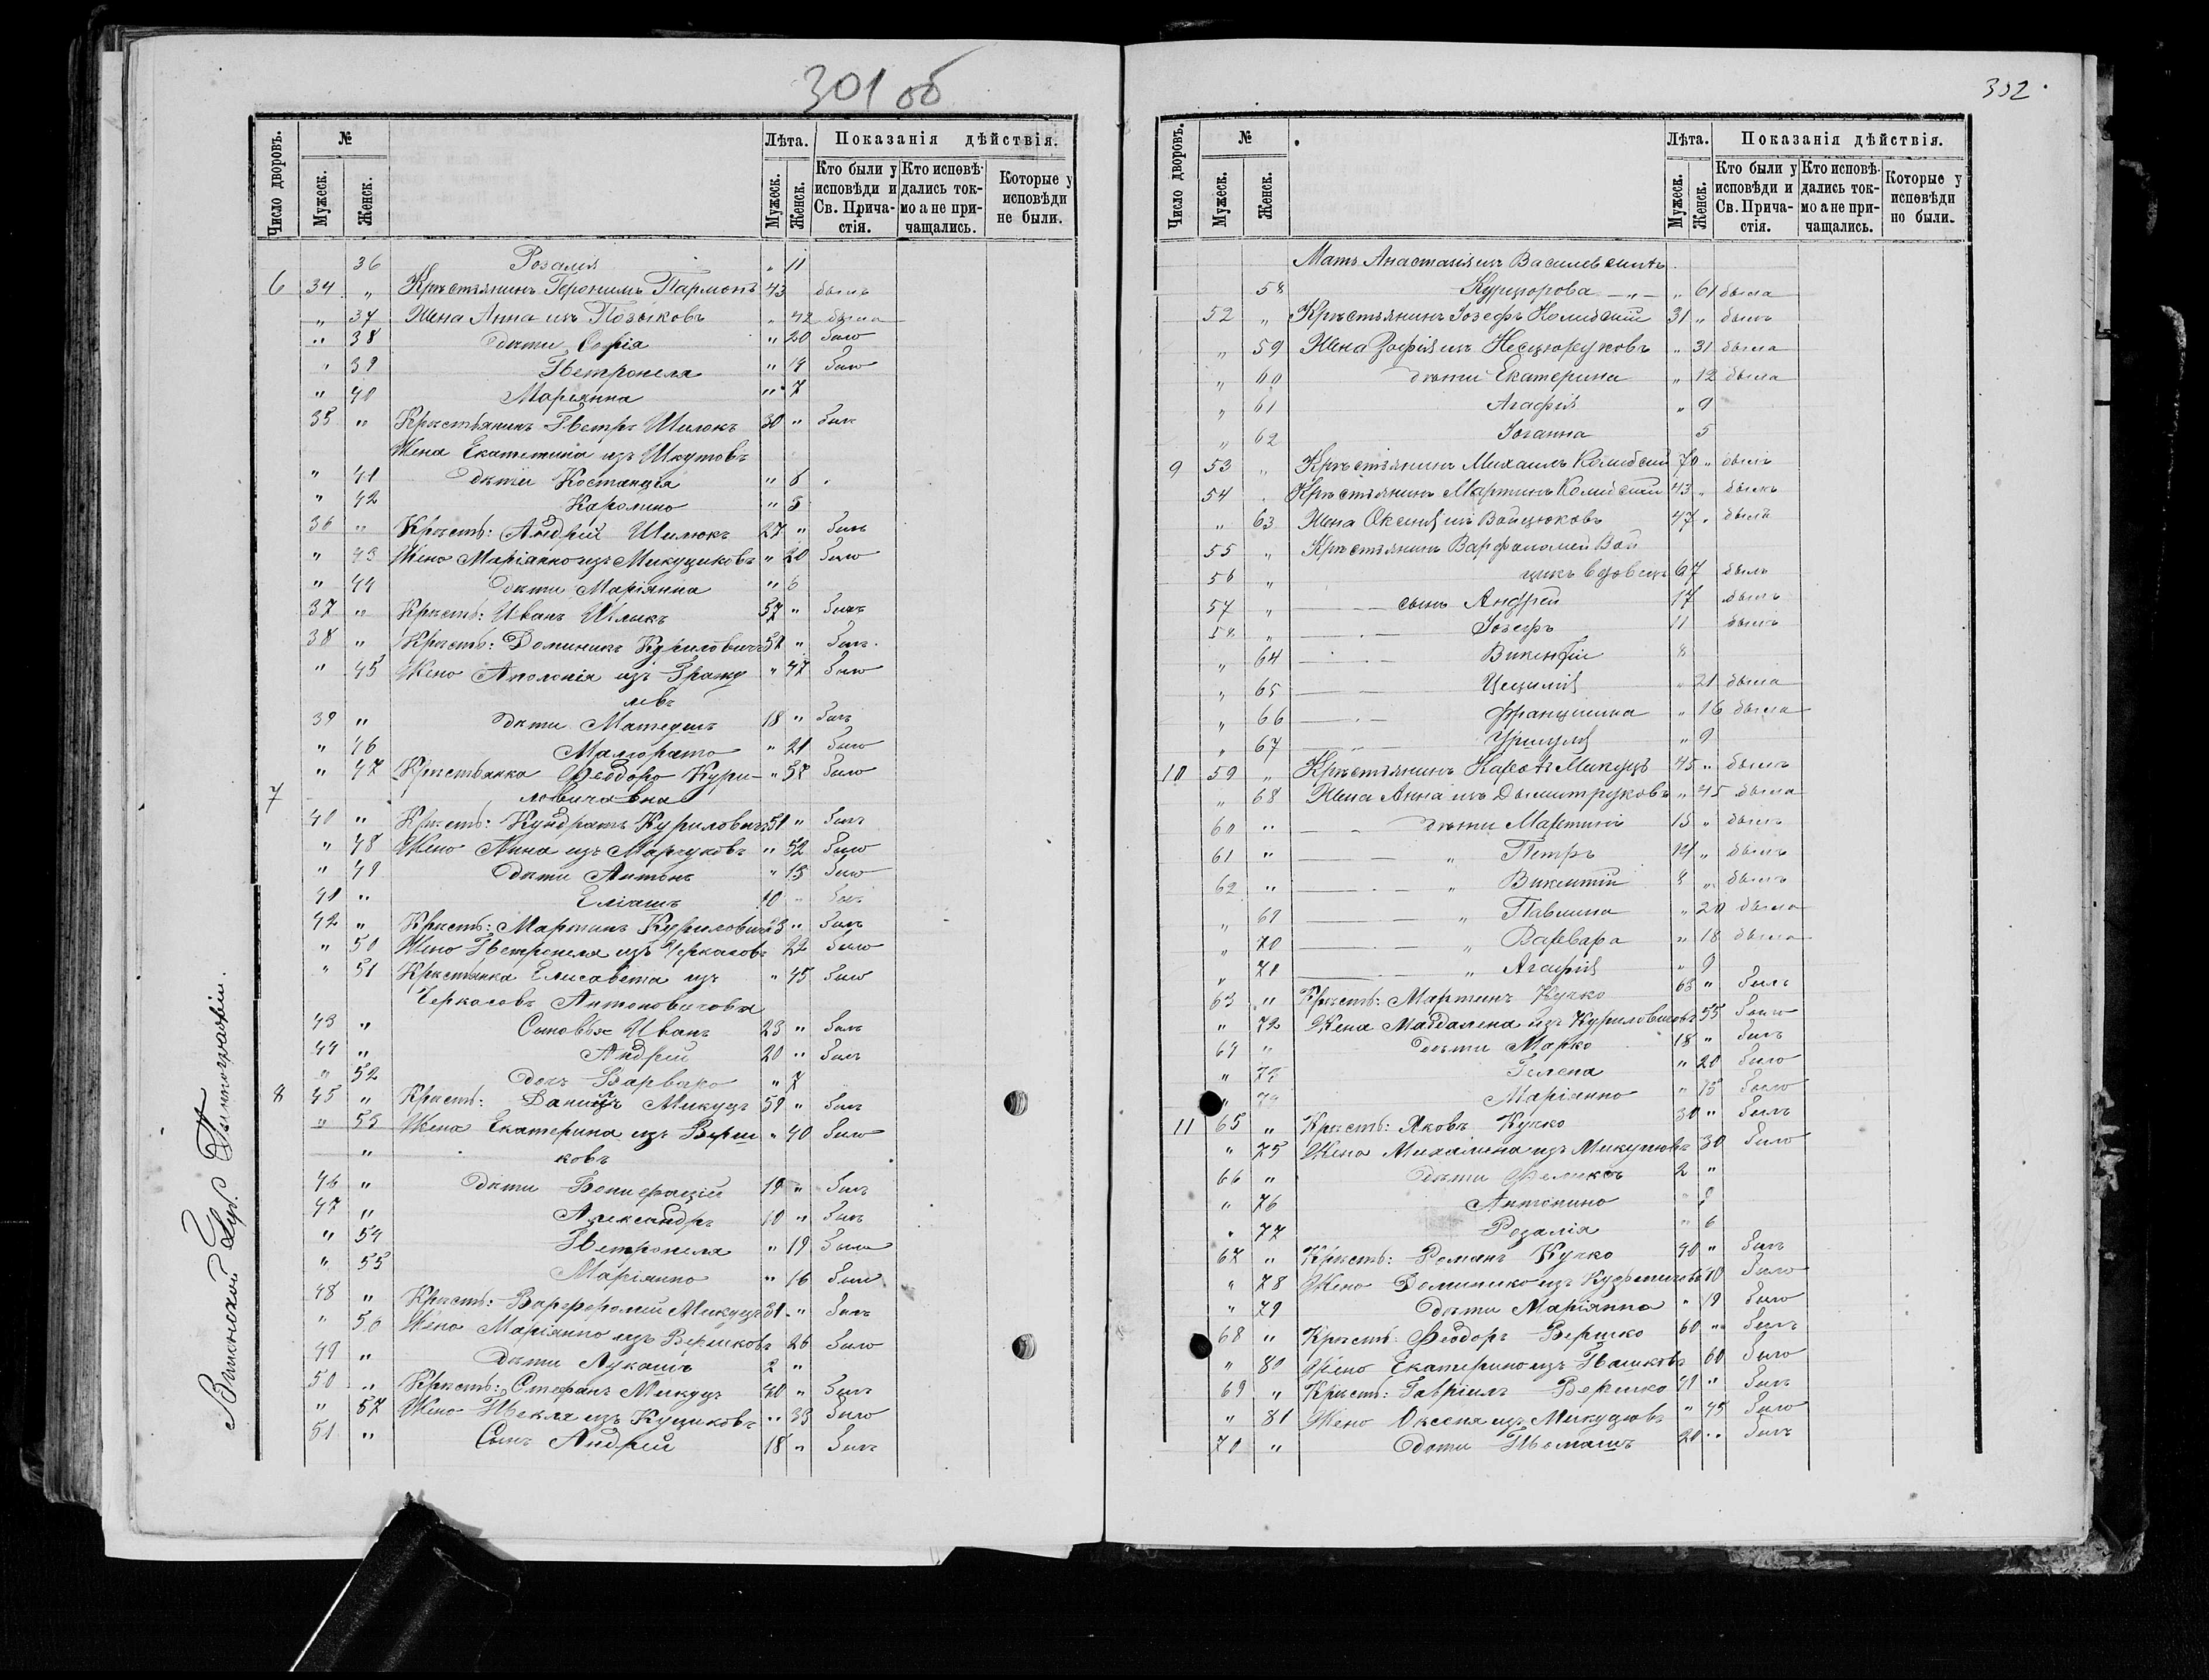 301 об
Число дворовъ. № Лѣта. Показанія дѣйствія.
Мужеск. Женск. Мужеск. Женск. Кто были у исповѣди и Св. Причастія. Кто исповѣдались токмо а не причащались. Которые у исповѣди не были.
36 Розалія " 11
6 34 " Крестьянинъ Геронимъ Пармонъ 43 былъ
" 37 Жена Анна изъ Позыковъ " 42 была
" 38 дѣти Софія " 20 было
" 39 Петронеля " 19 было
" 40 Маріанна " 7
35 " Крестьянинъ Петръ Шилокъ 30 " былъ
Жена Екатерина изъ Шкутовъ
" 41 дѣти Костанція " 6
" 42 Каролино " 5
36 " Крестъ: Андрей Шилюкъ 27 " былъ
" 43 Жено Маріанно изъ Микуциковъ " 20 было
" 44 дѣти Маріянна " 6
37 " Крестъ: Иванъ Шлыкъ 57 " былъ
38 " Крестъ: Доминикъ Куриловичъ 52 " былъ
" 45 Жено Аполонія изъ " 47 было
39 " дѣти Матеушъ 18 " былъ
" 46 Малгорато " 21 было
" 47 Крестьянка Феодоро Кури- " 57 было
7 ловичовна
40 " Крестъ: Кундратъ Куриловичъ 51 " былъ
" 48 Жено Анна изъ Марчуковъ " 52 было
" 49 дѣти Антонъ " 15 было
41 " Еліашъ 10 " былъ
42 " Крестъ: Мартинъ Куриловичъ 23 " былъ
" 50 Жено Петронеля изъ Черкасовъ 22 было
" 51 Крестянка Елисавета изъ " 45 было
Черкасовъ Антоновичова
43 " Сыновья Иванъ 23 " былъ
44 " Андрей 20 " былъ
" 52 дочь Варвара " 7
8 45 " Крестъ: Данилъ Микуцъ 59 " былъ
" 53 Жена Екатерина изъ Верш " 40 было
" ковъ
46 " дѣти Бонифацій 19 " былъ
47 " Александръ 10 " былъ
" 54 Петронеля " 19 было
" 55 Маріянно " 16 было
48 " Крестъ: Варфоломій Микуцъ 31 " былъ
" 56 Жено Маріянно изъ Вершковъ 26 было
49 " дѣти Лукашъ 2 "
50 " Крестъ: Стефанъ Микуцъ 40 " былъ
" 57 Жено Текля изъ Куциковъ " 33 было
51 " Сынъ Андрей 18 " былъ
Виленской Губ. Типографіи.
332
Число дворовъ. № Лѣта. Показанія дѣйствія.
Мужеск. Женск. Мужеск. Женск. Кто были у исповѣди и Св. Причастія. Кто исповѣдались токмо а не причащались. Которые у исповѣди но были.
Мать Анастазія изъ
58 " 61 была
52 " Крестьянинъ Іозефъ 31 " былъ
" 59 Жена Зофія изъ Несцюруковъ " 31 была
" 60 дѣти Екатерина " 12 была
" 61 Агафія " 9
" 62 Іоганна 5
9 53 " Крестьянинъ Михаилъ 70 " былъ
54 Крестьянинъ Мартинъ 43 " былъ
" 63 Жена Оксенія изъ Войцюковъ 47 " былъ
55 " Крестьянинъ Варфоломей Вой
56 " цикъ вдовецъ 67 былъ
57 " сынъ Андрей 17 былъ
58 " Іозефъ 11 былъ
" 64 Викентій 8
" 65 Цецилія " 21 была
" 66 Францишка " 16 была
" 67 Уршуля " 9
10 59 " Крестьянинъ Кароль Микуцъ 45 " былъ
" 68 Жена Анна изъ Дымитруковъ " 45 была
60 " дѣти Мартинъ 15 " былъ
61 " " Петръ 14 " былъ
62 " " Викентій 8 " былъ
" 69 " Павлина " 20 была
" 70 " Варвара " 18 была
" 71 " Агафія " 9
63 " Крестъ: Мартинъ Кучко 63 " былъ
" 72 Жена Магдалена изъ Куриловичовъ 55 было
64 " дѣти Марко 18 " былъ
" 73 Гелена " 20 было
" 74 Маріянно " 15 было
11 65 " Крестъ: Яковъ Кучко 30 " былъ
" 75 Жено Михалина изъ Микуцювъ 30 было
66 " дѣти Феликсъ 2 "
" 76 Антонино " 8
" 77 Розалія " 6
67 " Крестъ: Романъ Кучко 40 " былъ
" 78 Жено Доминико изъ 40 было
" 79 дѣти Маріянна " 19 было
68 " Крестъ: Феодоръ Вершко 60 " былъ
" 80 Жено Екатерино изъ Пашковъ 60 было
69 " Крестъ: Гавріилъ Вершко 41 " былъ
" 81 Жено Оксеня изъ Микуцювъ " 45 было
70 " дѣти Томашъ 20 " былъ